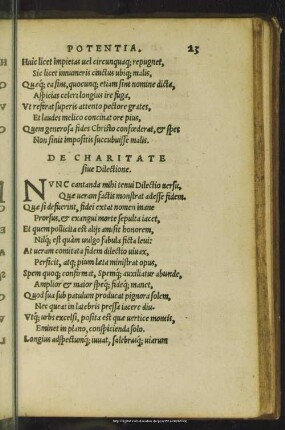 POTENTIA. 23
Huic licet Impietas uel circunquaq; repugnet,
Sic licet innumeris cinctus ubiq; malis,
Quæq; ea sint, quocunq; etiam sint nomine dicta,
Aspicias celeri longius ire fuga,
Vt restrat superis attento pectore grates,
Et laudes melico concinat ore pius,
Quem generosa fides Christo confœderat, & spes
Non sinit impositis succubuisse malis.
DE CHARITATE
siue Dilectione.
NVNC cantanda mihi tenui Dilectio uersu,
Quæ ueram factis monstrat adesse fidem.
Quæ si defuerint, fidei extat nomen inane
Prorsus, & exangui morte sepulta iacet,
Et quem pollicita est alijs amisit honorem,
Nilq; est quàm uulgo fabula ficta leui:
At ueram comitata fidem dilectio uiuax,
Perficit, atq; pium lata ministrat opus,
Spem quoq; confirmat, Spemq; auxiliatur abunde,
Amplior & maior speq; fideq; manet,
Quod sua sub patulum producat pignora solem,
Nec queat in latebris pressa iacere diu.
Vtq; urbs excelsi, posita est quæ uertice montis,
Eminet in plano, conspicienda solo.
Longius adspectumq; iuuat, salebrasq; uiarum